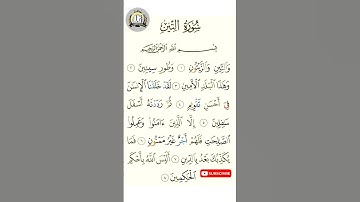 سُورَةُ التِّينِ
بِسْمِ اللَّهِ الرَّحْمَٰنِ الرَّحِيمِ
وَالتِّينِ وَالزَّيْتُونِ ١ وَطُورِ سِينِينَ ٢
وَهَٰذَا الْبَلَدِ الْأَمِينِ ٣ لَقَدْ خَلَقْنَا الْإِنسَٰنَ
فِي أَحْسَنِ تَقْوِيمٍ ٤ ثُمَّ رَدَدْنَٰهُ أَسْفَلَ
سَٰفِلِينَ ٥ إِلَّا الَّذِينَ ءَامَنُوا۟ وَعَمِلُوا۟
الصَّٰلِحَٰتِ فَلَهُمْ أَجْرٌ غَيْرُ مَمْنُونٍ ٦ فَمَا
يُكَذِّبُكَ بَعْدُ بِالدِّينِ ٧ أَلَيْسَ اللَّهُ بِأَحْكَمِ
الْحَٰكِمِينَ ٨
SUBSCRIBE